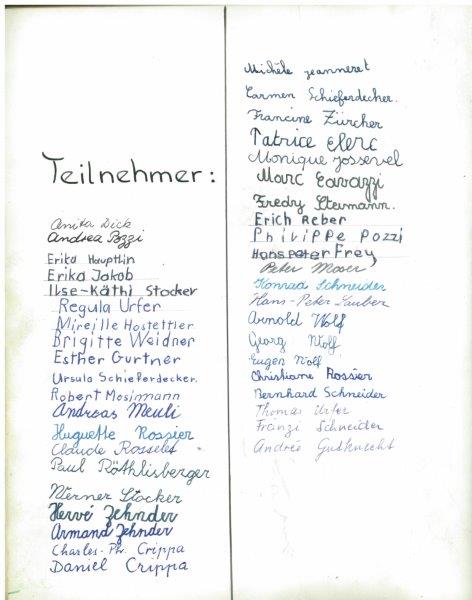 Teilnehmer:
Anita Dick
Andrea Pozzi
Erika Häuptlin
Erika Jakob
Ilse-Käthi Stocker
Regula Urfer
Mireille Hostettler
Brigitte Weidner
Esther Gurtner
Ursula Schieferdecker.
Robert Mosimann
Andreas Meuli
Huguette Rossier
Claude Rosselet
Paul Röthlisberger
Werner Stocker
Hervé Zehnder
Armand Zehnder
Charles-Ph. Crippa
Daniel Crippa
Michèle Jeanneret
Carmen Schieferdecker.
Francine Zürcher
Patrice Clerc
Monique Jossevel
Marc Cavazzi
Fredy Stermann.
Erich Reber
Philippe Pozzi
Hanspeter Frey
Peter Moser
Konrad Schneider
Hans-Peter Sauber
Arnold Wolf
Georg Wolf
Eugen Wolf
Christiane Rossier
Bernhard Schneider
Thomas Urfer
Franzi Schneider
André Gutknecht